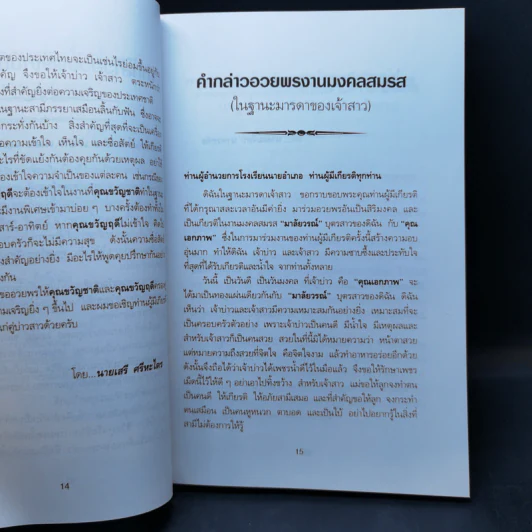 ตของประเทศไทยจะเป็นเช่นไรย่อมขึ้นอยู่กับ
คัญ จึงขอให้เจ้าบ่าว เจ้าสาว ตระหนัก
ที่สำคัญยิ่งต่อความเจริญของประเทศชาติ
นฐานะสามีภรรยาเสมือนลิ้นกับฟัน
กระทั่งกันบ้าง สิ่งสำคัญที่สุดที่จะเป็นเครื่อง
อความเข้าใจ เห็นใจ และซื่อสัตย์ ให้เกียรติ
อะไรที่ขัดแย้งกันต้องคุยกันด้วยเหตุผล อย่า
เข้าใจความจำเป็นของแต่ละคน เช่น
ฤดีจะต้องเข้าใจในงานที่คุณขวัญชาติทำในฐานะ
ะมีงานพิเศษเข้ามาบ่อย ๆ บางครั้งต้องทำ
สาร์-อาทิตย์ หากคุณขวัญฤดีไม่เข้าใจ
อบครัวก็จะไม่มีความสุข ดังนั้นความซื่อสัตย์
สำคัญอย่างยิ่ง มีอะไรให้พูดคุยปรึกษากัน
งกัน
ขออวยพรให้คุณขวัญชาติและคุณขวัญฤดี
เจริญยิ่ง ๆ ขึ้นไป และผมขอเชิญท่านผู้มีเกียรติ
แก่คู่บ่าวสาวด้วยครับ
โดย...นายเสรี ศรีหะไตร
14
คำกล่าวอวยพรงานมงคลสมรส
(ในฐานะมารดาของเจ้าสาว)
ท่านผู้อำนวยการโรงเรียนนายอำเภอ ท่านผู้มีเกียรติทุกท่าน
ดิฉันในฐานะมารดาเจ้าสาว ขอกราบขอบพระคุณท่านผู้มีเกียรติ
ที่ได้กรุณาสละเวลาอันมีค่ายิ่ง มาร่วมอวยพรอันเป็นสิริมงคล และ
เป็นเกียรติในงานมงคลสมรส "มาลัยวรรณ์" บุตรสาวของดิฉัน กับ "คุณ
เอกภาพ" ซึ่งในการมาร่วมงานของท่านผู้มีเกียรติครั้งนี้สร้างความอบ
อุ่นมาก ทำให้ดิฉัน เจ้าบ่าว และเจ้าสาว มีความซาบซึ้งและประทับใจ
ที่สุดที่ได้รับเกียรติและน้ำใจ จากท่านทั้งหลาย
วันนี้ เป็นวันดี เป็นวันมงคล ที่เจ้าบ่าว คือ "คุณเอกภาพ" จะ
ได้มาเป็นทองแผ่นเดียวกันกับ "มาลัยวรรณ์" บุตรสาวของดิฉัน ดิฉัน
เห็นว่า เจ้าบ่าวและเจ้าสาวมีความเหมาะสมกันอย่างยิ่ง เหมาะสมที่จะ
เป็นครอบครัวตัวอย่าง เพราะเจ้าบ่าวเป็นคนดี มีน้ำใจ มีเหตุผลและ
สำหรับเจ้าสาวก็เป็นคนสวย สวยในที่นี้มิได้หมายความว่า หน้าตาสวย
แต่หมายความถึงสวยที่จิตใจ คือจิตใจงาม แล้วทำอาหารอร่อยอีกด้วย
ดังนั้นจึงถือได้ว่าเจ้าบ่าวได้เพชรน้ำดีไว้ในมือแล้ว จึงขอให้รักษาเพชร
เม็ดนี้ไว้ให้ดี ๆ อย่าเอาไปทิ้งขว้าง สำหรับเจ้าสาว แม่ขอให้ลูกจงทำตน
เป็นคนดี ให้เกียรติ ให้อภัยสามีเสมอ และที่สำคัญขอให้ลูก จงกระทำ
ตนเสมือน เป็นคนหูหนวก ตาบอด และเป็นใบ้ อย่าไปอยากรู้ในสิ่งที่
สามีไม่ต้องการให้รู้
15